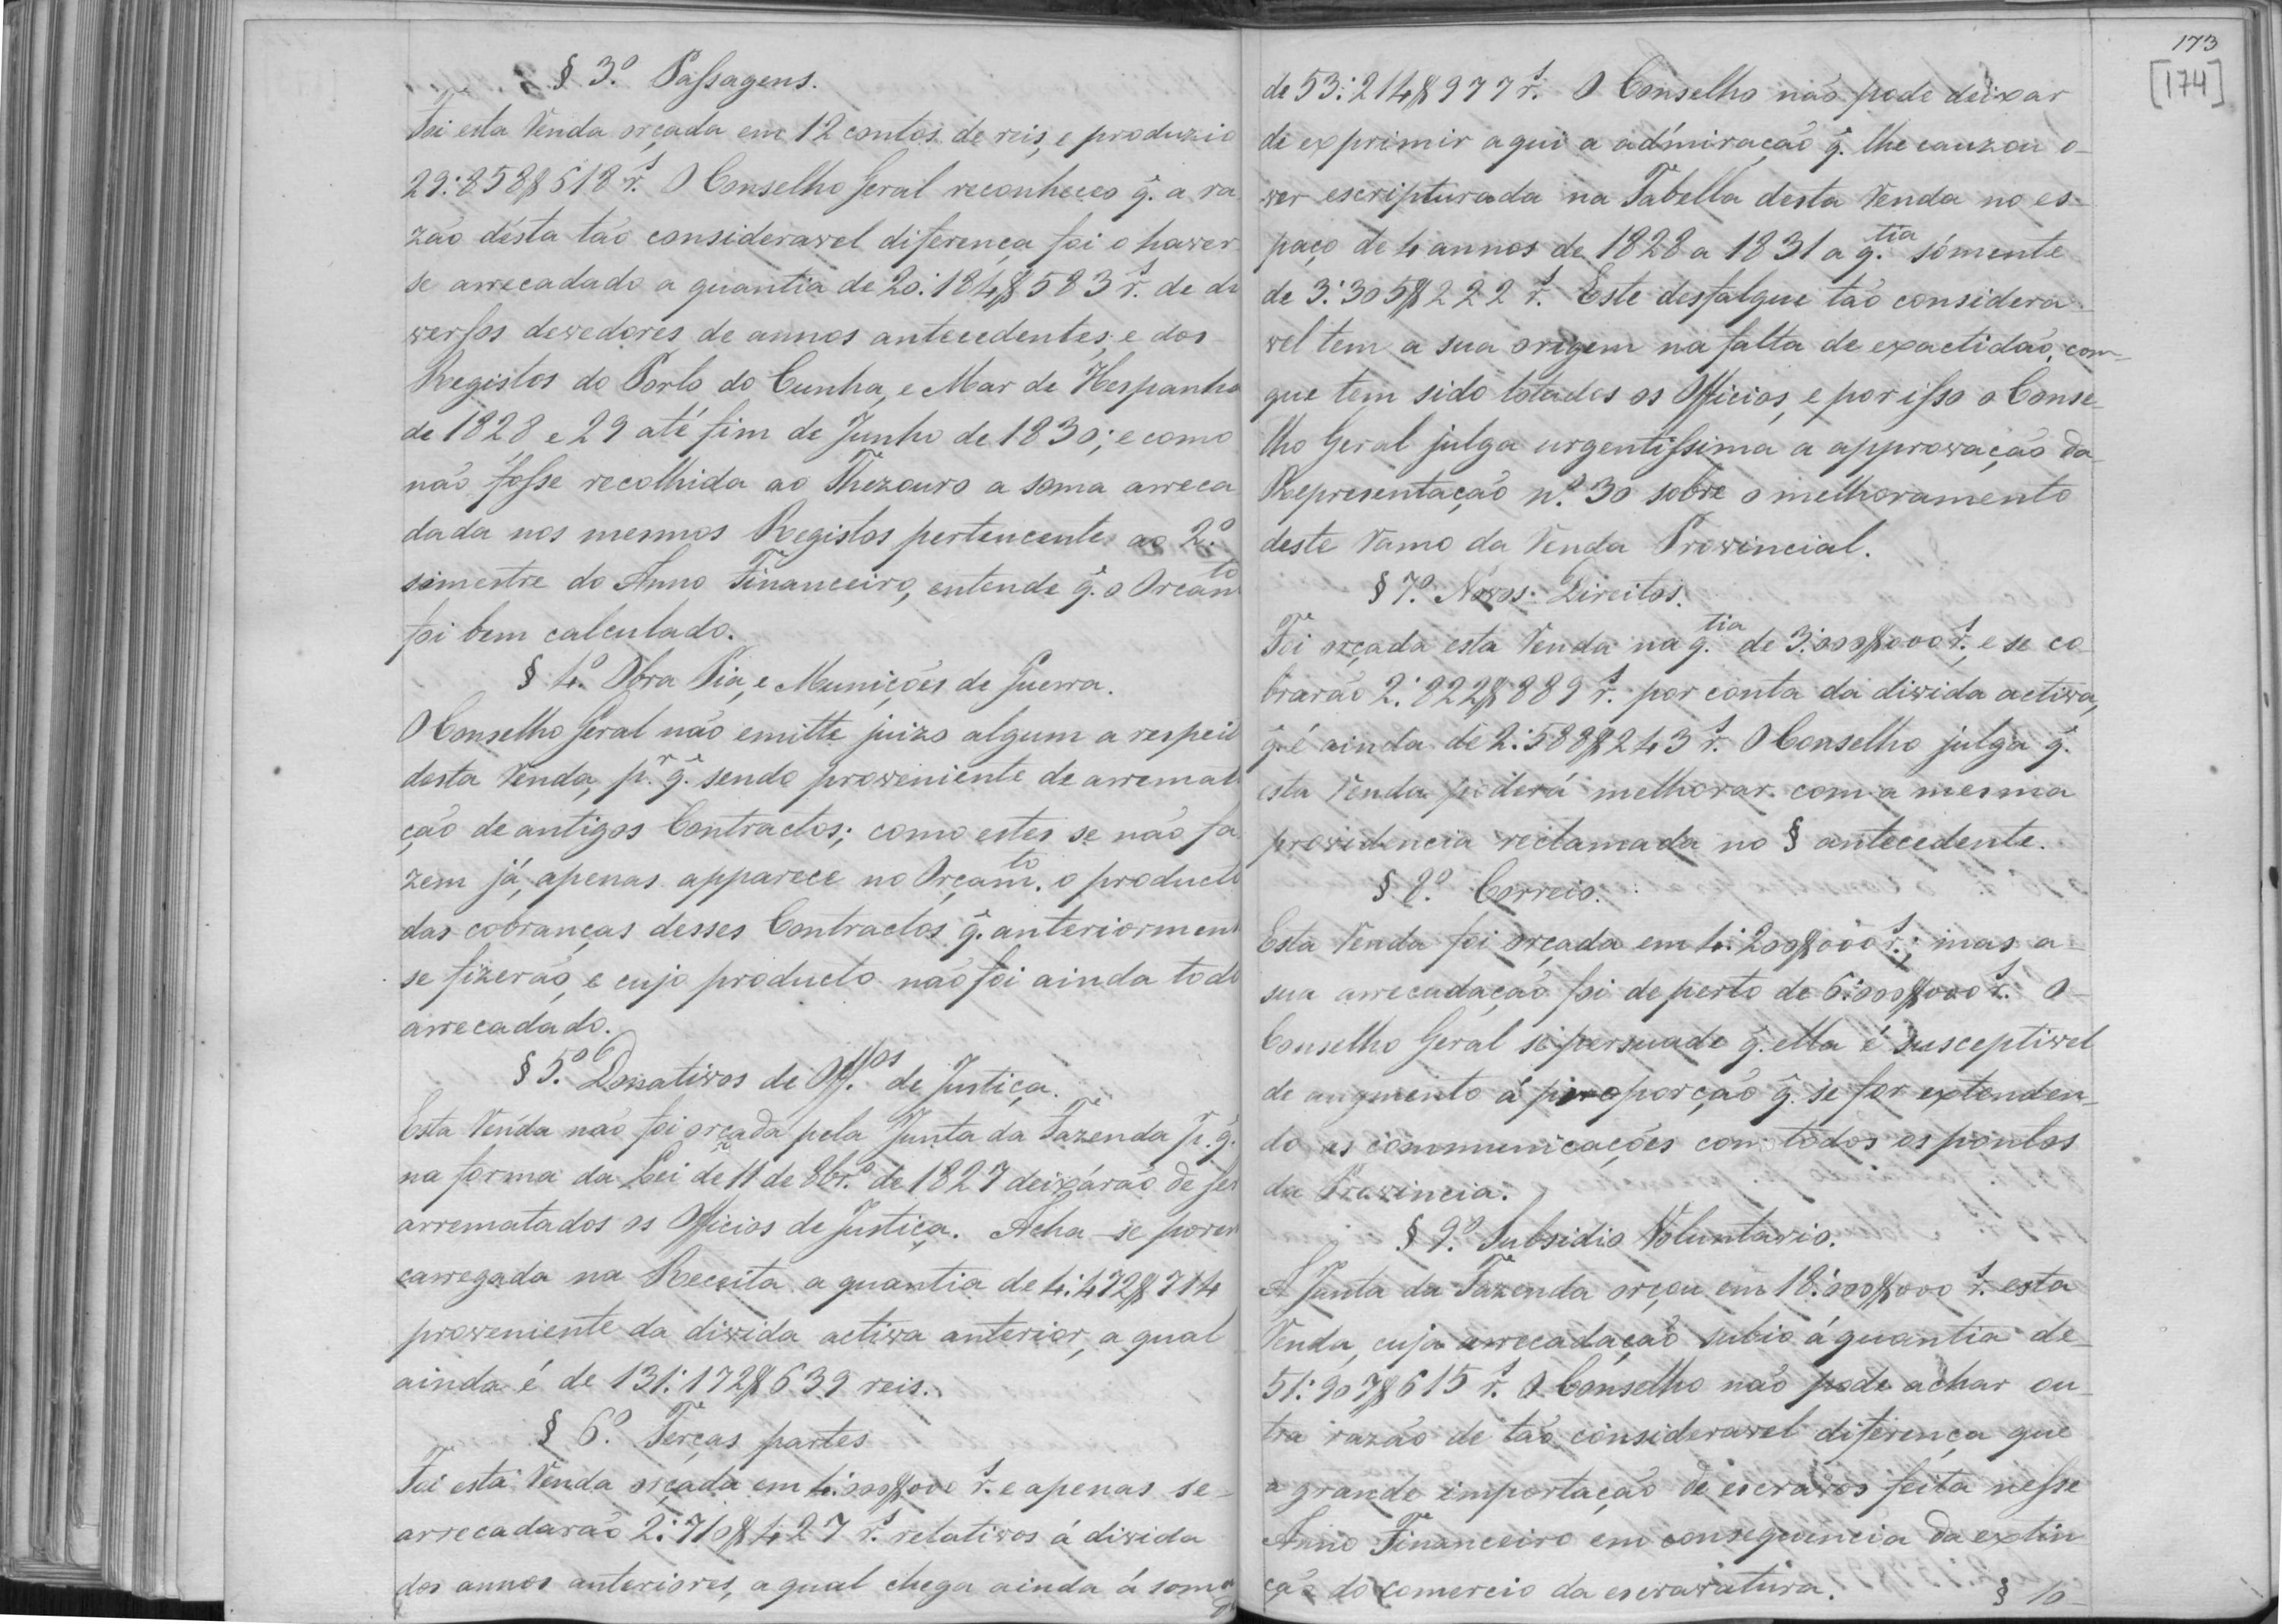 § 3.º Passagens.
Foi esta Renda orçada em 12 contos de reis, e produzio
29:858$618 r.s O Conselho Geral reconheceo q̃. a ra
zão desta tão consideravel diferença foi o haver
se arrecadado a quantia de 20:184$583 r.s de di
versos devedores de annos antecedentes, e dos
Registos do Porto do Cunha, e Mar de Hespanha
de 1828 e 29 até fim de Junho de 1830; e como
não fosse recolhida ao Thezouro a soma arreca
dada nos mesmos Registos pertencente ao 2.º
simestre do Anno Financeiro, entende q̃. o Orcam.to
foi bem calculado.
§ 4.º Obra Pia, e Munições de Guerra.
O Conselho Geral não emitte juizo algum a respeit
desta Renda, p.r q̃. sendo proveniente de arremat
ção de antigos Contractos; como estes se não fa
zem já, apenas apparece no Orçam.to o producto
das cobranças desses Contractos q̃. anteriorment
se fizerão, e cujo producto não foi ainda todo
arrecadado.
§ 5.º Donativos de Off.os de Justiça.
Esta Renda não foi orçada pela Junta da Fazenda p.r q̃.
na forma da Lei de 11 de 8br.º de 1827 deixárão de ser
arrematados os Officios de Justiça. Acha-se porem
carregada na Receita a quantia de 4:472$714
proveniente da divida activa anterior, a qual
ainda é de 131:172$639 reis.
§ 6.º Terças partes
Foi esta Renda orçada em 4:000$000 r.s e apenas se
arrecadarão 2:710$427 r.s relativos á divida
dos annos anteriores, a qual chega ainda á soma
173
[174]
de 53:214$977 r.s O Conselho não pode deixar
de exprimir aqui a admiração q̃. lhe cauzou o
ver escripturada na Tabella desta Renda no es-
paço de 4 annos de 1828 a 1831 a q.tia sómente
de 3:305$222 r.s Este desfalque tão considera
vel tem a sua origem na falta de exactidão, com
que tem sido lotados os Officios, e por isso o Conse-
lho Geral julga urgentissima a approvação da
Representação n.º 30 sobre o melhoramento
deste Ramo da Renda Provincial.
§ 7.º Novos Direitos.
Foi orçada esta Renda na q.tia de 3:000$000 r.s, e se co
brarão 2:822$889 r.s por conta da divida activa,
q̃. é ainda de 2:588$243 r.s O Conselho julga q̃.
esta Renda poderá melhorar com a mesma
providencia reclamada no § antecedente.
§ 8.º Correio.
Esta Renda foi orçada em 4:200$000 r.s; mas a
sua arrecadação foi de perto de 6:000$000 r.s O
Conselho Geral se persuade q̃. ella é susceptivel
de augmento á proporção q̃. se for extenden-
do as communicações com todos os pontos
da Provincia.
§ 9.º Subsidio Voluntario.
A Junta da Fazenda orçou em 18:000$000 r.s esta
Renda, cuja arrecadação subio á quantia de
51:907$615 r.s O Conselho não pode achar ou-
tra razão de tão consideravel diferença que
a grande importação de escravos feita nesse
Anno Financeiro em consequencia da extin
ção do comercio da escravatura.
§ 10